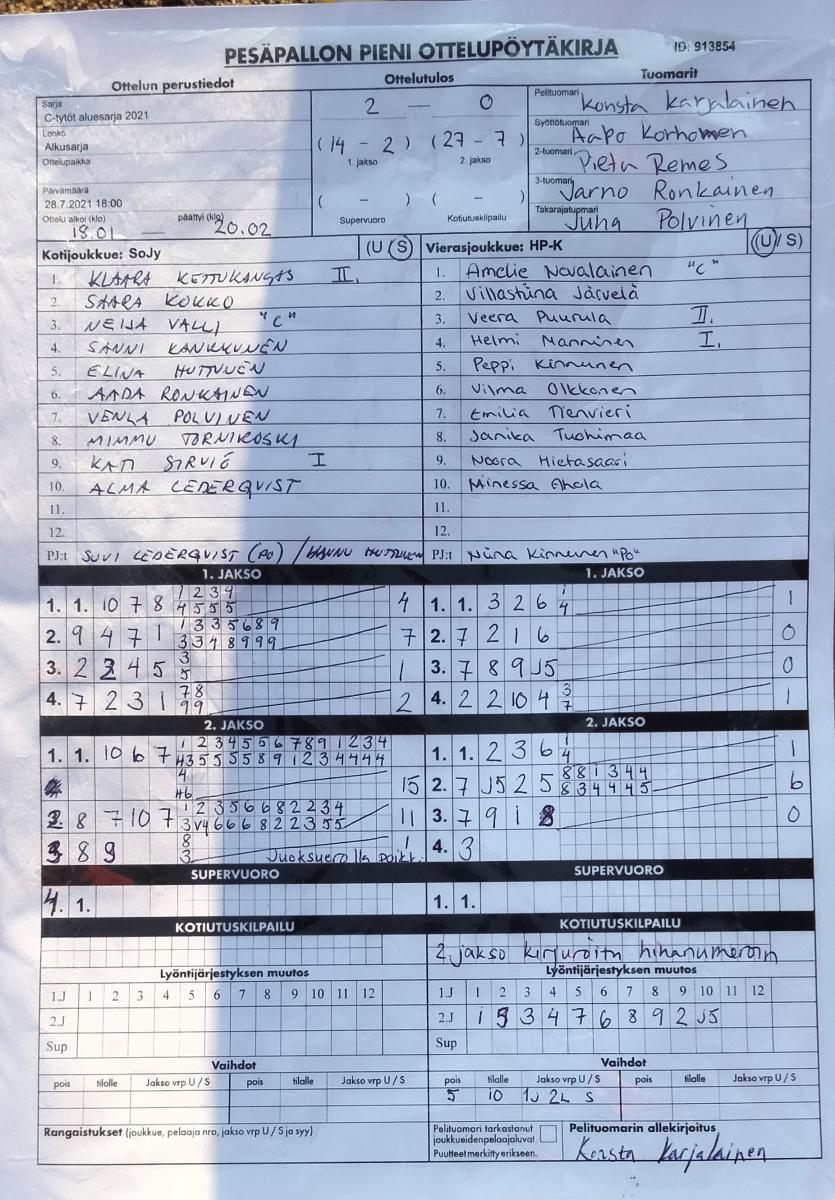 PESÄPALLON PIENI OTTELUPÖYTÄKIRJA ID: 913854
Ottelun perustiedot Ottelutulos Tuomarit
Sarja
C-tytöt aluesarja 2021
Lohko
Alkusarja
Ottelupaikka
Päivämäärä
28.7.2021 18:00
Ottelu alkoi (klo) päättyi (klo)
18.01 — 20.02
2 — 0
(14 - 2) (27 - 7)
1. jakso 2. jakso
( - ) ( - )
Supervuoro Kotiutuskilpailu
Pelituomari Konsta Karjalainen
Syöttötuomari Aapo Korhonen
2-tuomari Pietu Remes
3-tuomari Jarno Ronkainen
Takarajatuomari Juha Polvinen
Kotijoukkue: SoJy (U / S)
1. KLAARA KETTUKANGAS II.
2. SAARA KOKKO
3. NEIJA VALLI "C"
4. SANNI KANKKUNEN
5. ELINA HUTTUNEN
6. AADA RONKAINEN
7. VENLA POLVINEN
8. MIMMU TORNIKOSKI
9. KATI SIRVIÖ I
10. ALMA LEDERQVIST
11.
12.
PJ:t SUVI LEDERQVIST (PO) / HANNU HUTTUNEN
Vierasjoukkue: HP-K (U / S)
1. Amelie Nevalainen "C"
2. Villastiina Järvelä
3. Veera Puurula II.
4. Helmi Manninen I.
5. Peppi Kinnunen
6. Vilma Olkkonen
7. Emilia Tienvieri
8. Janika Tuohimaa
9. Noora Hietasaari
10. Minessa Ahola
11.
12.
PJ:t Niina Kinnunen "PO"
1. JAKSO
1. 1. 10 7 8 1 2 3 4 4
4 5 5 5
2. 9 4 7 1 1 3 3 5 6 8 9 7
3 3 4 8 9 9 9
3. 2 3 4 5 3 1
5
4. 7 2 3 1 7 8 2
9 9
1. JAKSO
1. 1. 3 2 6 1 1
4
2. 7 2 1 6 0
3. 7 8 9 J5 0
4. 2 2 10 4 3 1
7
2. JAKSO
1. 1. 10 6 7 1 2 3 4 5 5 6 7 8 9 1 2 3 4
4 3 5 5 5 5 8 9 1 2 3 4 4 4 4
4 15
46
2 8 7 10 7 1 2 3 5 6 6 8 2 2 3 4 11
3 V4 6 6 6 8 2 2 3 5 5
3 8 9 8 1
3 Juoksuerolla poikki.
2. JAKSO
1. 1. 2 3 6 1 1
4
2. 7 J5 2 5 8 8 1 3 4 4 6
8 3 4 4 4 5
3. 7 9 1 8 0
4. 3
SUPERVUORO
4. 1.
SUPERVUORO
1. 1.
KOTIUTUSKILPAILU
KOTIUTUSKILPAILU
2. jakso kirjuroitu hihanumeroin
Lyöntijärjestyksen muutos
1.J 1 2 3 4 5 6 7 8 9 10 11 12
2.J
Sup
Lyöntijärjestyksen muutos
1.J 1 2 3 4 5 6 7 8 9 10 11 12
2.J 1 5 3 4 7 6 8 9 2 J5
Sup
Vaihdot
pois tilalle Jakso vrp U / S pois tilalle Jakso vrp U / S
Vaihdot
pois tilalle Jakso vrp U / S pois tilalle Jakso vrp U / S
5 10 1J 2L S
Rangaistukset (joukkue, pelaaja nro, jakso vrp U / S ja syy)
Pelituomari tarkastanut
joukkueidenpelaajaluvat.
Puutteet merkitty erikseen.
Pelituomarin allekirjoitus
Konsta Karjalainen